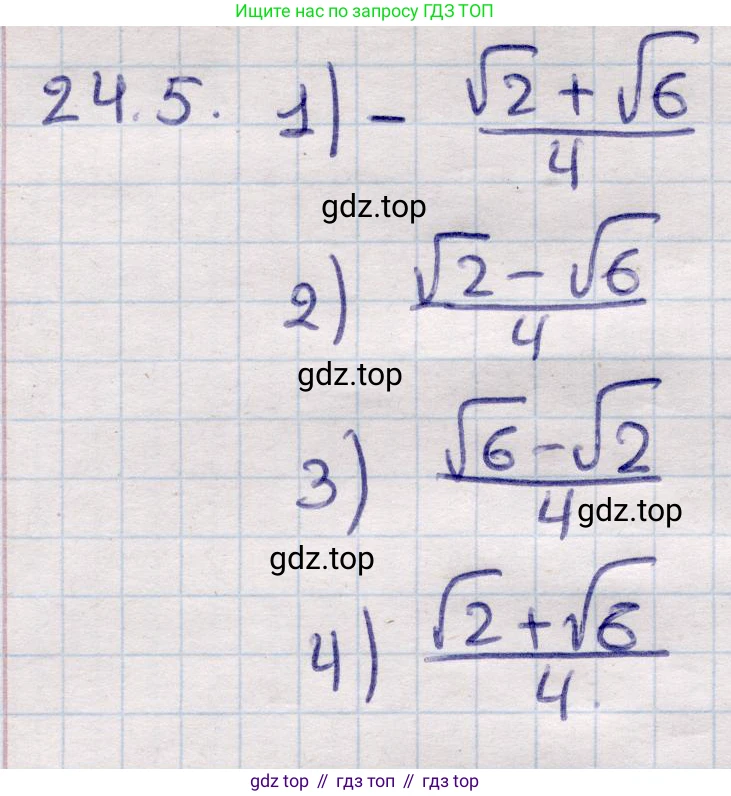 Ищите нас по запросу ГДЗ ТОП
24.5. 1) - (√2 + √6)/4
gdz.top
2) (√2 - √6)/4
gdz.top
3) (√6 - √2)/4
gdz.top
gdz.top
4) (√2 + √6)/4.
gdz top // гдз топ // gdz top